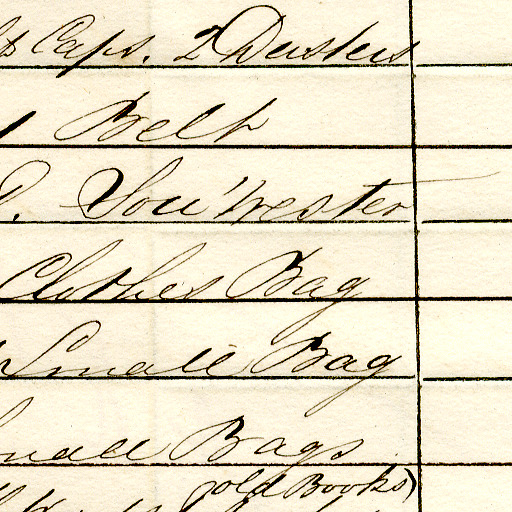 Caps. 2 Dusters
1 Belt
Sou'wester
Clothes Bag
Small Bag
Small Bags
gold Books)